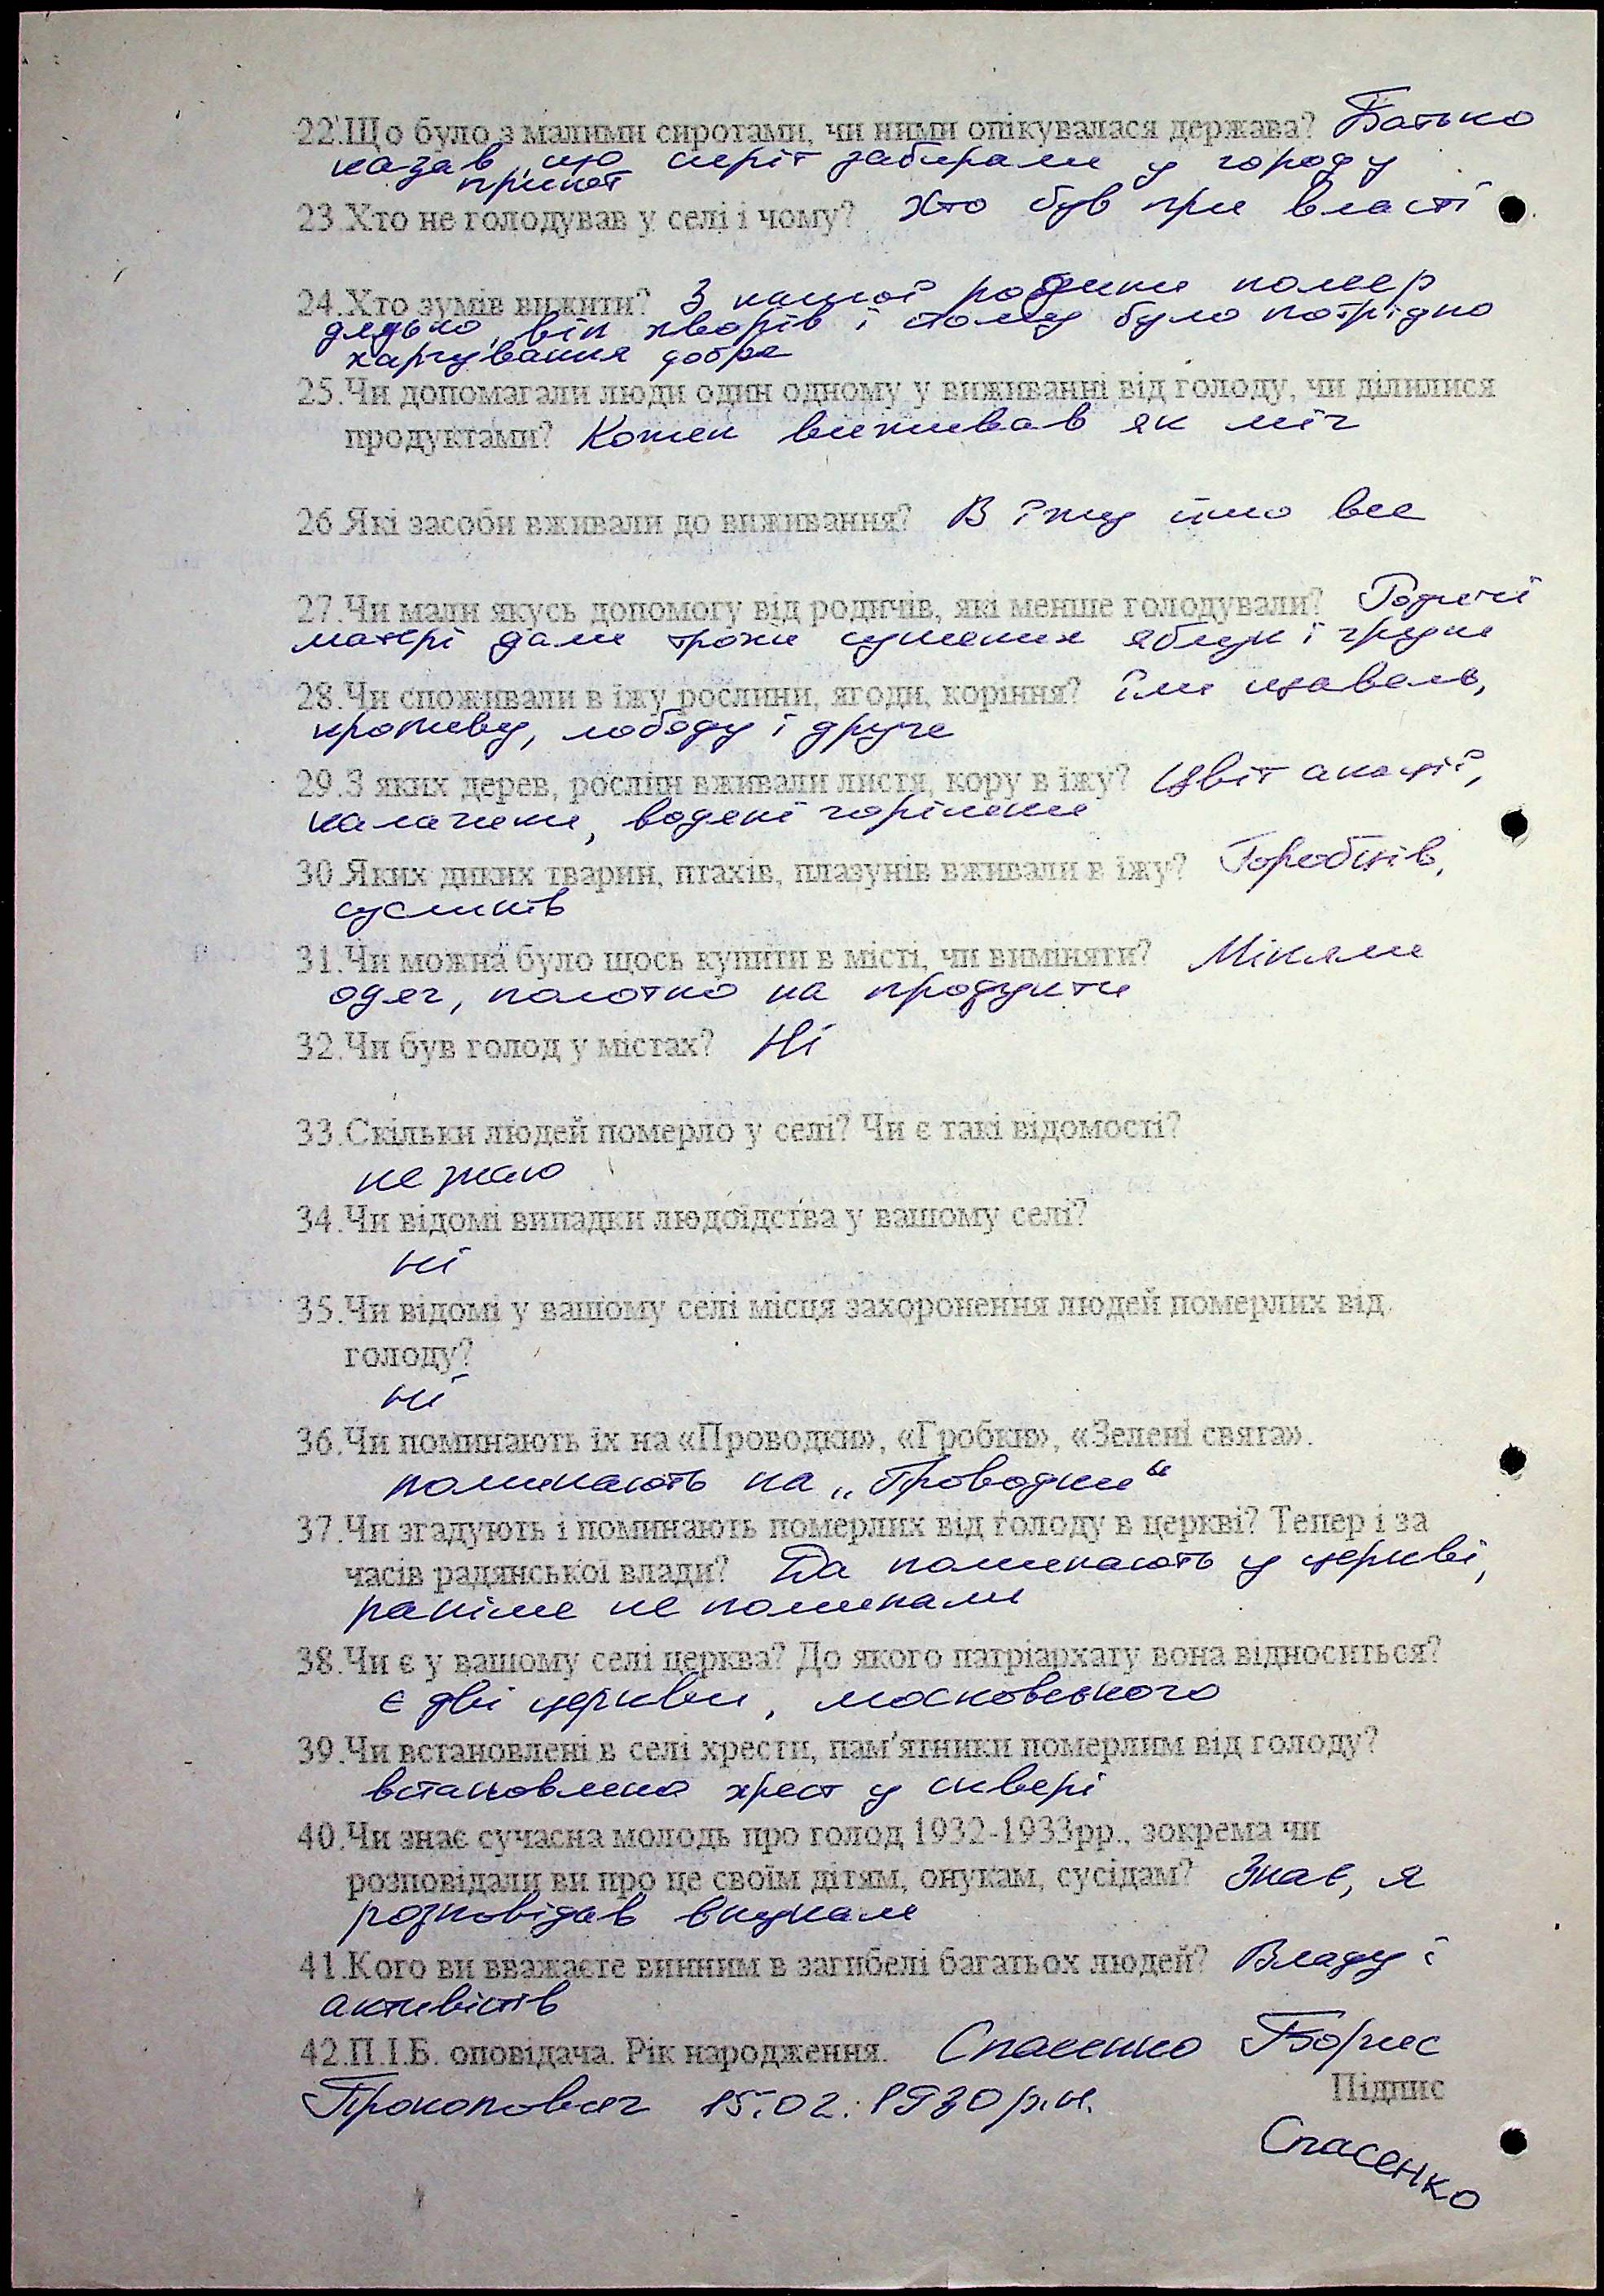 22.Що було з малими сиротами, чи ними опікувалася держава? Батько
казав, що сиріт забирали у городу
приют
23.Хто не голодував у селі і чому? Хто був при власті
24.Хто зумів вижити? З нашої родини помер
дядько, він хворів і йому було потрібно
харчування добре
25.Чи допомагали люди один одному у виживанні від голоду, чи ділилися
продуктами? Кожен виживав як міг
26.Які засоби вживали до виживання? В їжу йшло все
27.Чи мали якусь допомогу від родичів, які менше голодували? Родичі
матері дали трохи сушених яблук і груш
28.Чи споживали в їжу рослини, ягоди, коріння? їли щавель,
кропиву, лободу і друге
29.З яких дерев, рослин вживали листя, кору в їжу? Цвіт акації,
калачики, водені горішки
30.Яких диких тварин, птахів, плазунів вживали в їжу? Горобців,
сусликів
31.Чи можна було щось купити в місті, чи виміняти? Міняли
одяг, полотно на продукти
32.Чи був голод у містах? Ні
33.Скільки людей померло у селі? Чи є такі відомості?
не знаю
34.Чи відомі випадки людоїдства у вашому селі?
ні
35.Чи відомі у вашому селі місця захоронення людей померлих від
голоду?
ні
36.Чи поминають їх на «Проводки», «Гробки», «Зелені свята».
поминають на „Проводки“
37.Чи згадують і поминають померлих від голоду в церкві? Тепер і за
часів радянської влади? Да поминають у церкві,
раніше не поминали
38.Чи є у вашому селі церква? До якого патріархату вона відноситься?
є дві церкви, московського
39.Чи встановлені в селі хрести, пам'ятники померлим від голоду?
встановлено хрест у сквері
40.Чи знає сучасна молодь про голод 1932-1933рр., зокрема чи
розповідали ви про це своїм дітям, онукам, сусідам? Знає, я
розповідав внукам
41.Кого ви вважаєте винним в загибелі багатьох людей? Владу і
активістів
42.П.І.Б. оповідача. Рік народження. Спасенко Борис
Прокопович 15.02.1930 р.н.
Підпис
Спасенко